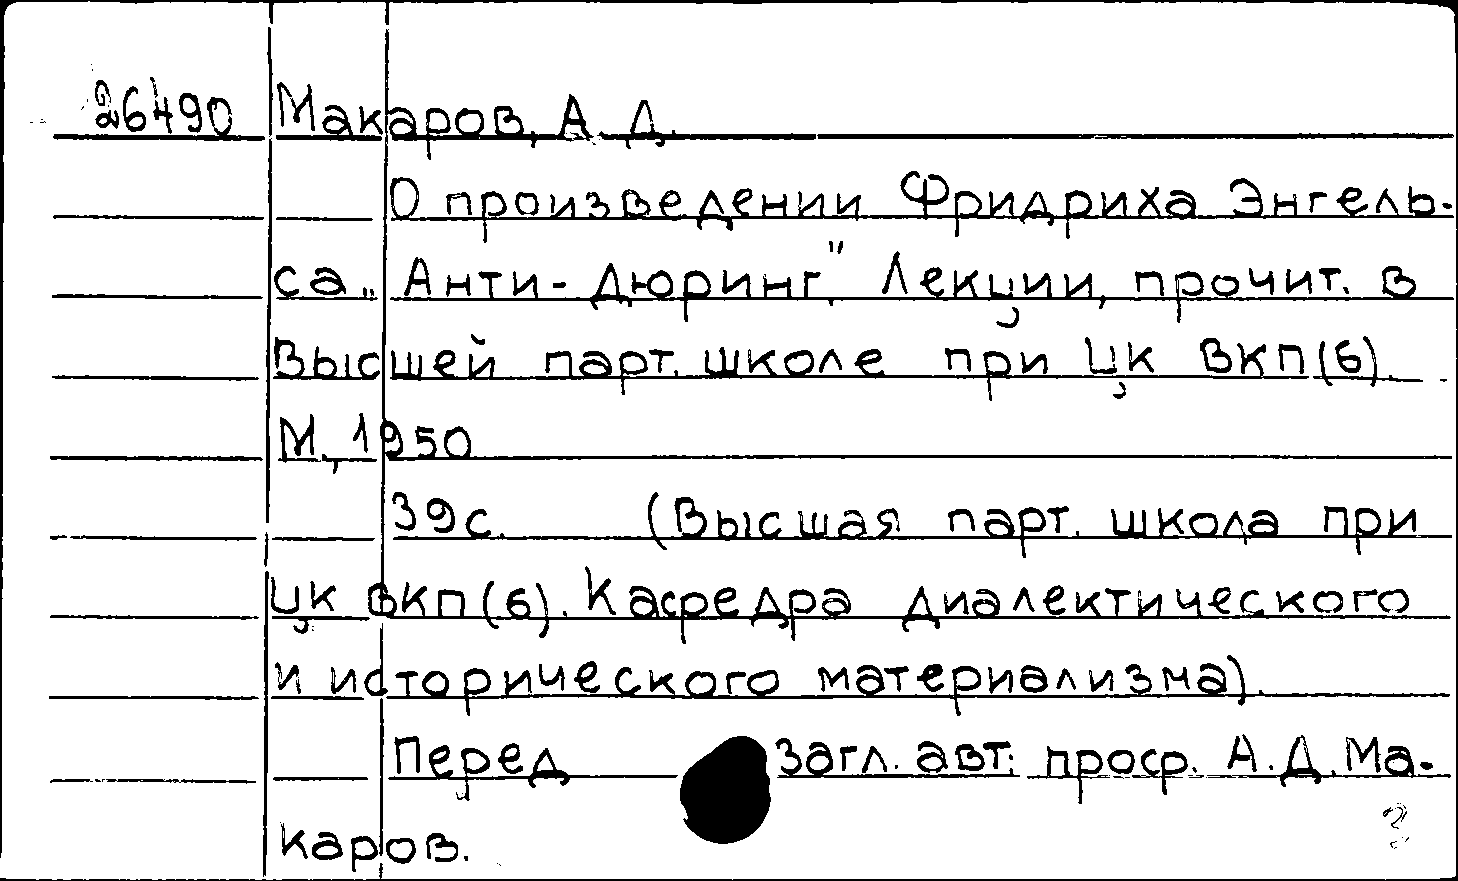 26490 Макаров, А. Д.
О произведении Фридриха Энгель-
са „Анти-Дюринг". Лекции, прочит. в
Высшей парт. школе при ЦК ВКП(б).
М., 1950
39с. (Высшая парт. школа при
ЦК ВКП(б). Кафедра диалектического
и исторического материализма).
Перед загл. авт: проф. А.Д. Ма-
каров.